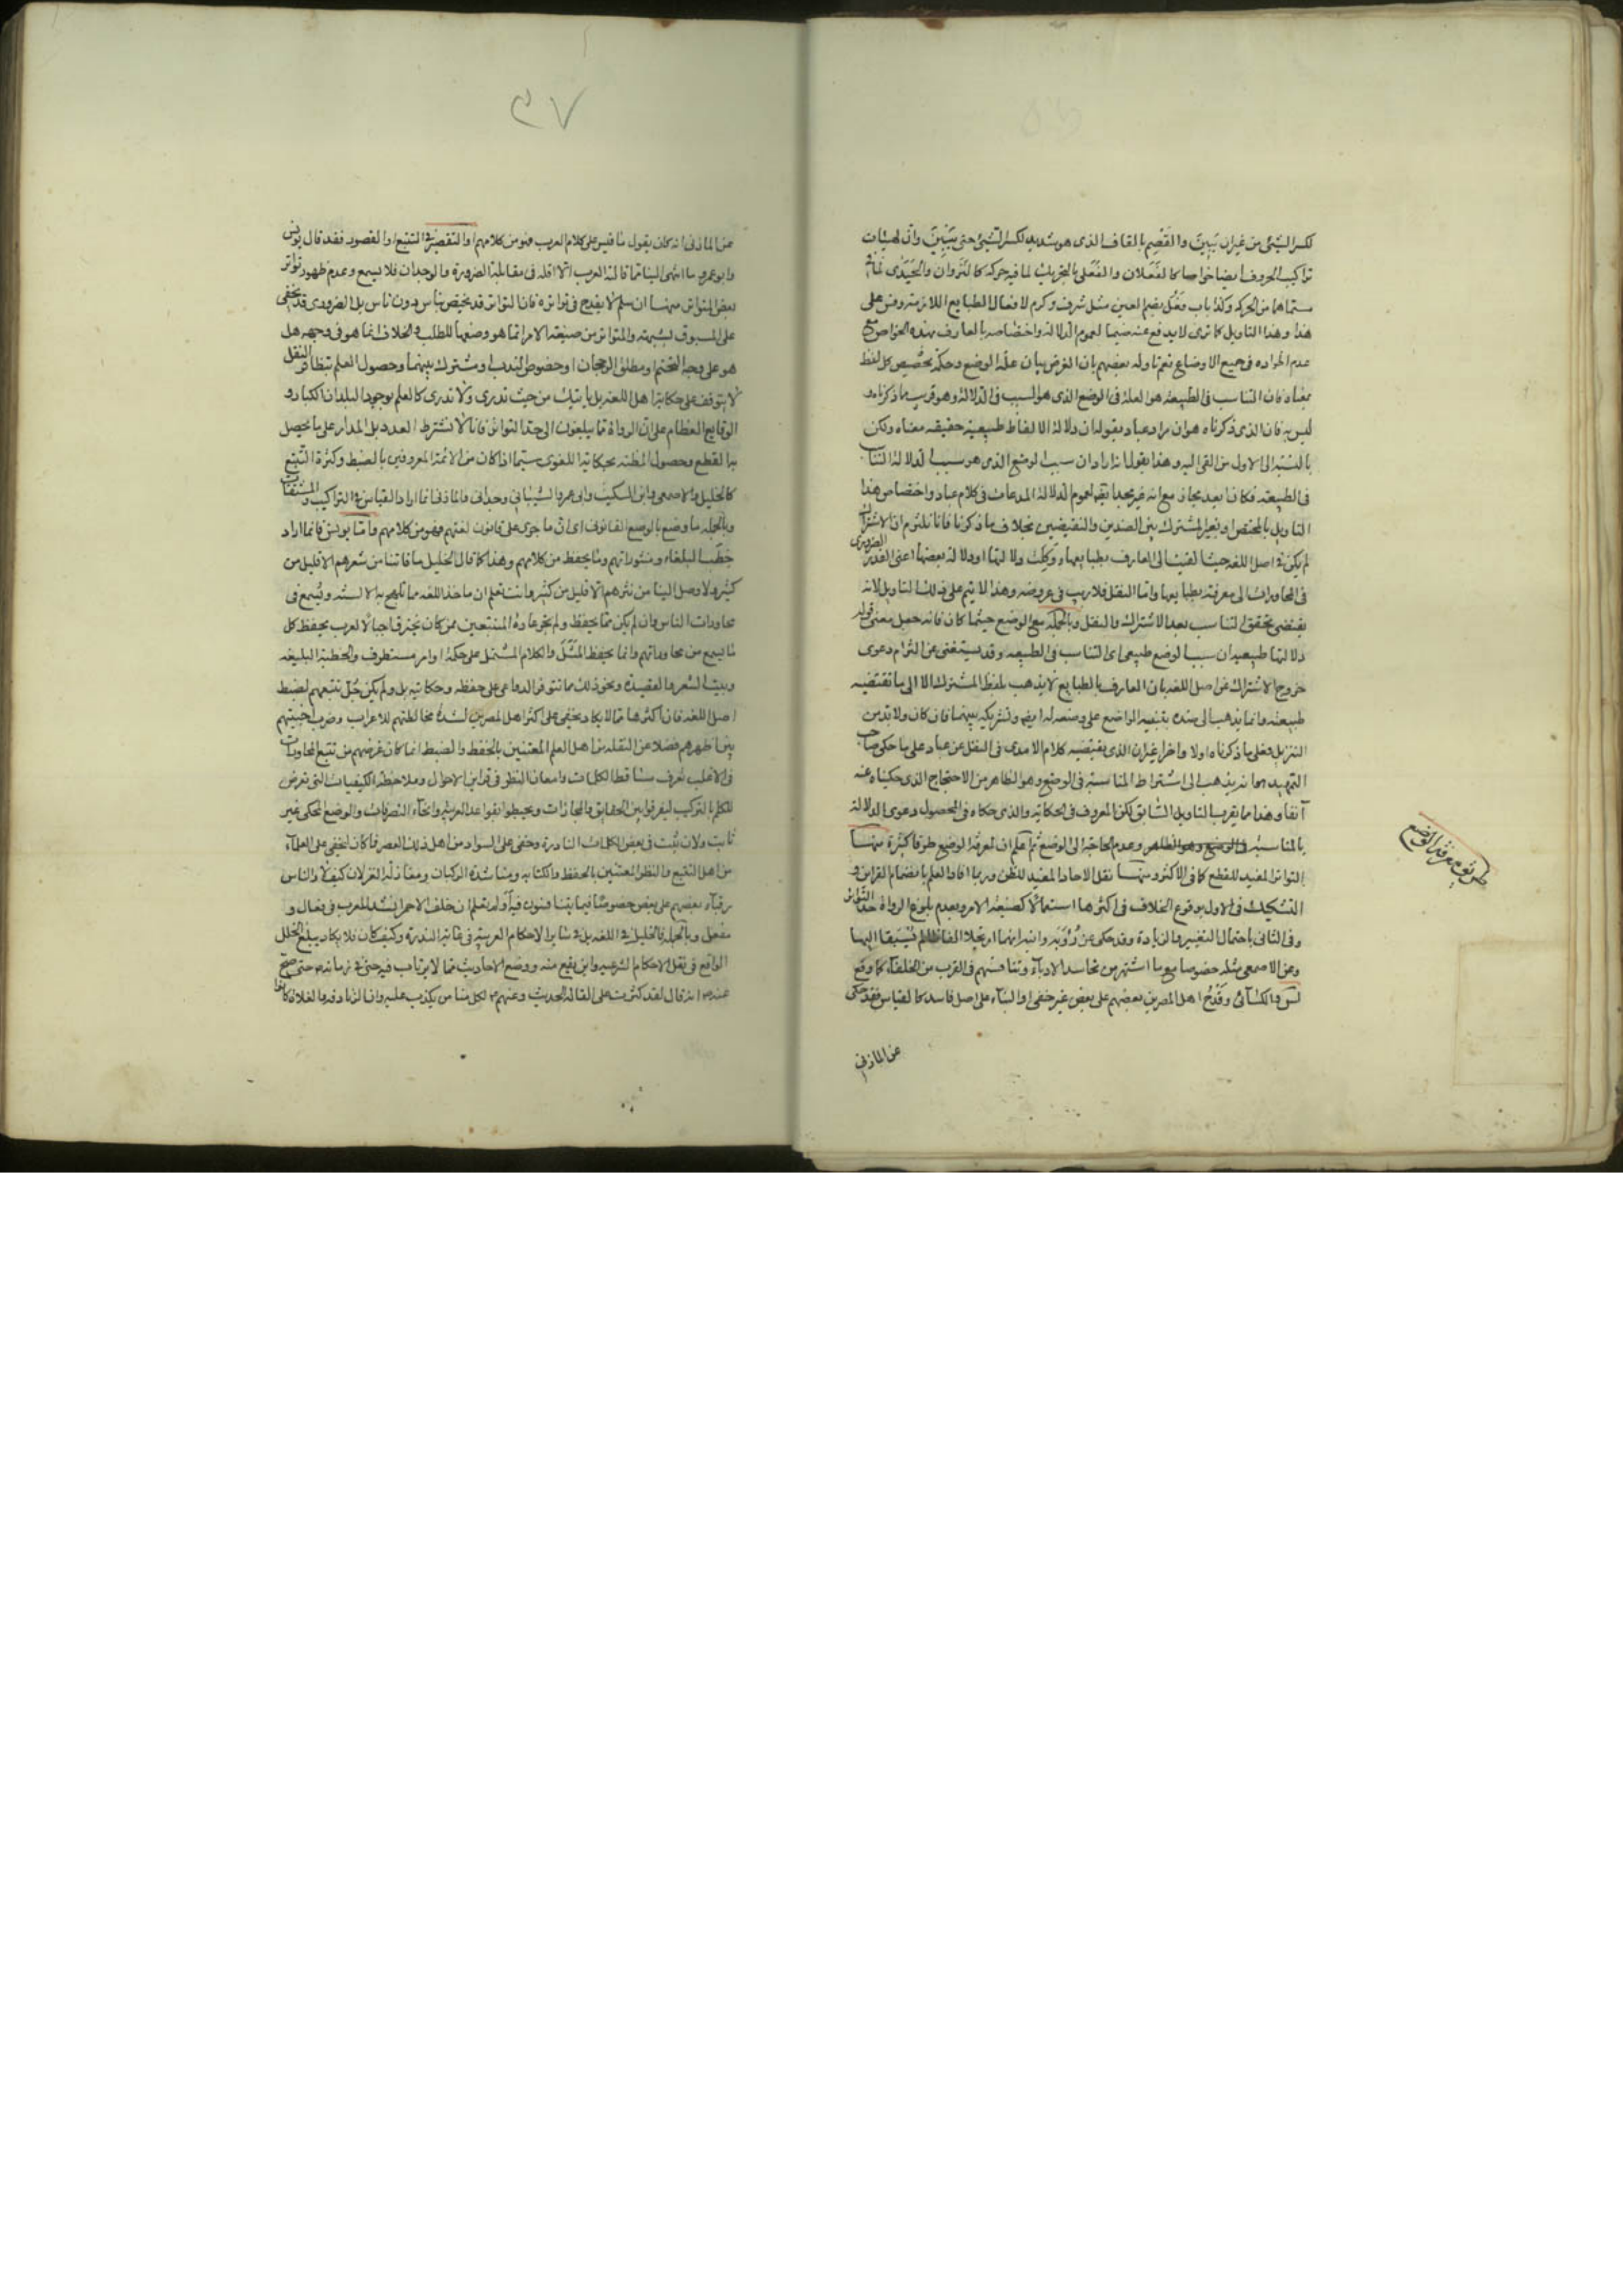 لكسر الشئ من غير ان يبين والقصم بالقاف الذى هو شديد لكسر الشئ حتى يبين وان لهيئات
تراكيب الحروف ايضا خواصا كالفعلان والفعلى بالتحريك لما فيه حركة كالنزوان والحيدى لما فى
مسماهما من الحركة وكذا باب فعل بضم العين مثل شرف وكرم لافعال الطبايع اللازمة وقس على
هذا وهذا التاويل كما ترى لا يدفع عنه ضيما لعموم الدلالة واختصاصه بالعارف بهذه الخواص مع
عدم اطراده فى جميع الاوضاع نعم تاوله بعضهم بان الغرض بيان علة الوضع وحكمة تخصيص كل لفظ
بمعناه فان التناسب فى الطبيعة هو العلة فى الوضع الذى هو السبب فى الدلالة وهو قريب ما ذكرناه
ليس به فان الذى ذكرناه هو ان مراد عباد بقوله ان دلالة الالفاظ طبيعية حقيقة معناه ولكن
بالنسبة الى الاول من القى اليه وهذا يقول انه اراد ان سبب الوضع الذى هو سبب الدلالة التناسب
فى الطبيعة فكان ابعد مجاز مع انه غير مجد ايضا لعموم الدلالة المدعاة فى كلام عباد واختصاص هذا
التاويل بالمختص او بغير المشترك بين الضدين والنقيضين بخلاف ما ذكرنا فانا نلتزم ان الاشتراك
لم يكن فى اصل اللغة حيث القيت الى العارف بطبايعها وكلت دلالتها او دلالة بعضها اعنى القدر الضرورى
فى المحاورات الى معرفته بطبايعها واما النقل فلا ريب فى عروضه وهذا لا يتم على ذلك التاويل لانه
يقتضى تحقق التناسب بعد الاشتراك والنقل وبالجملة مع الوضع حيثما كان فانه جعل معنى قوله
دلالتها طبيعية ان سبب الوضع طبيعى اى التناسب فى الطبيعة وقد يستغنى عن التزام دعوى
خروج الاشتراك عن اصل اللغة بان العارف بالطبايع لا يذهب بلفظ المشترك الا الى ما تقتضيه
طبيعته وانما يذهب الى ضده بتنبيه الواضع على وضعه له ايضا وتشريكه بينهما فان كان ولا بد من
التنزيل فعلى ما ذكرناه اولا واخرا غير ان الذى يقتضيه كلام الامدى فى النقل عن عباد على ما حكى صاحب
التمهيد انه يذهب الى اشتراط المناسبة فى الوضع وهو الظاهر من الاحتجاج الذى حكيناه عنه
آنفا وهذا ما يقرب التاويل السابق لكن المعروف فى الحكاية والذى حكاه فى المحصول دعوى الدلالة
بالمناسبة وعدم الحاجة الى الوضع ثم اعلم ان لمعرفة الوضع طرقا كثيرة منها
التواتر المفيد للقطع كما فى الاكثر ومنها نقل الاحاد المفيد للظن وربما افاد العلم بانضمام القراين و
التشكيك فى الاول بوقوع الخلاف فى اكثرها استعمالا كصيغة الامر وبعدم بلوغ الرواة حد التواتر
وفى الثانى باحتمال التغيير والزيادة وقد حكى عن رؤبة وابيه انهما ارتجلا الفاظا لم يسبقا اليها
وعن الاصمعى مثله خصوصا مع ما اشتهر من تحاسد الادباء وتنافسهم فى القرب من الخلفاء كما وقع
لس والكسائى وقدح اهل المصرين بعضهم على بعض غير خفى او البناء على اصل فاسد كالقياس فقد حكى
عن المازنى
طريق معرفة الوضع
٤٧
عن المازنى انه كان يقول ما قيس على كلام العرب فهو من كلامهم او التقصير فى التتبع او القصور فقد قال يونس
وابو عمرو ما انتهى الينا مما قالته العرب الا اقله فى مقابلة الضرورة والوجدان فلا يسمع وعدم ظهور تواتر
بعض المتواتر منها ان سلم لا يقدح فى تواتره فان التواتر قد يخص بناس دون ناس بل الضرورى قد يخفى
على المسبوق لشبهته والمتواتر من صيغة الامر انما هو وضعها للطلب والخلاف انما هو فى وجهه هل
هو على وجه التحتم او مطلق الرجحان او خصوص الندب او مشترك بينهما وحصول العلم بتظافر النقل
لا يتوقف على حكاية اهل اللغة بل ياتيك من حيث تدرى ولا تدرى كالعلم بوجود البلدان الكبار و
الوقايع العظام على ان الرواة مما يبلغون الى حد التواتر فانا لا نشترط العدد بل المدار على ما يحصل
به القطع وحصول المظنة بحكاية اللغوى سيما اذا كان من الائمة المعروفين بالضبط وكثرة التتبع
كالخليل والاصمعى وابن السكيت وابى عمرو الشيبانى وجدانى والمازنى انما اراد القياس فى التراكيب والمشتقات
وبالجملة ما وضع بالوضع القانونى اى ان ما جرى على قانون لغتهم فهو من كلامهم واما يونس فانما اراد
خطب البلغاء ومنثوراتهم وما يحفظ من كلامهم وهذا كما قال الخليل ما فاتنا من شعرهم الا قليل من
كثير ولا وصل الينا من نثرهم الا قليل من كثير وانت تعلم ان ماخذ اللغة مما تلهج به الالسنة ويسمع فى
محاورات الناس وان لم يكن مما يحفظ ولم تجر عادة المتتبعين ممن كان يخترق احياء العرب بحفظ كل
ما يسمع من محاوراتهم وانما يحفظ المثل والكلام المشتمل على حكمة او امر مستطرف والخطبة البليغة
وبيت الشعر والقصيدة ونحو ذلك مما تتوفر الدواعى على حفظه وحكايته بل ولم يكن جل تتبعهم لضبط
اصل اللغة فان اكثرها مما لا يكاد يخفى على اكثر اهل المصرين لشدة مخالطتهم للاعراب وضرب اخبيتهم
بين اظهرهم فضلا عن النقلة من اهل العلم المعتنين بالحفظ والضبط انما كان غرضهم من تتبع المحاورات
فى الاغلب تعرف مساقط الكلمات وامعان النظر فى قراين الاحوال وملاحظة الكيفيات التى تعرض
للكلم بالتركيب ليفرقوا بين الحقايق والمجازات ويحيطوا بقواعد العربية وانحاء التصرفات والوضع المحكى غير
ثابت ولان ثبت فى بعض الكلمات النادرة وخفى على السواد من اهل ذلك العصر فما كان ليخفى على العلماء
من اهل التتبع والنظر المعتنين بالحفظ والكتابة ومناشدة الركبان ومغازلة الغزلان كيف لا والناس
رقباء بعضهم على بعض خصوصا فيما يتنافسون فيه اولم تعلم ان خلف الاحمر انشد للعرب فى فعال و
مفعل وبالجملة فالخليل فى اللغة بل فى سائر الاحكام العربية فى غاية الندرة وكيف كان فلا يكاد يبلغ الخلل
الواقع فى نقل الاحكام الشرعية واين يقع منه ووضع الاحاديث مما لا يرتاب فيه حتى فى زمانه ص حتى صح
عنه ص انه قال لقد كثرت على القالة الحديث وعنهم ع لكل منا من يكذب عليه وان الزنادقة والغلاة كانوا